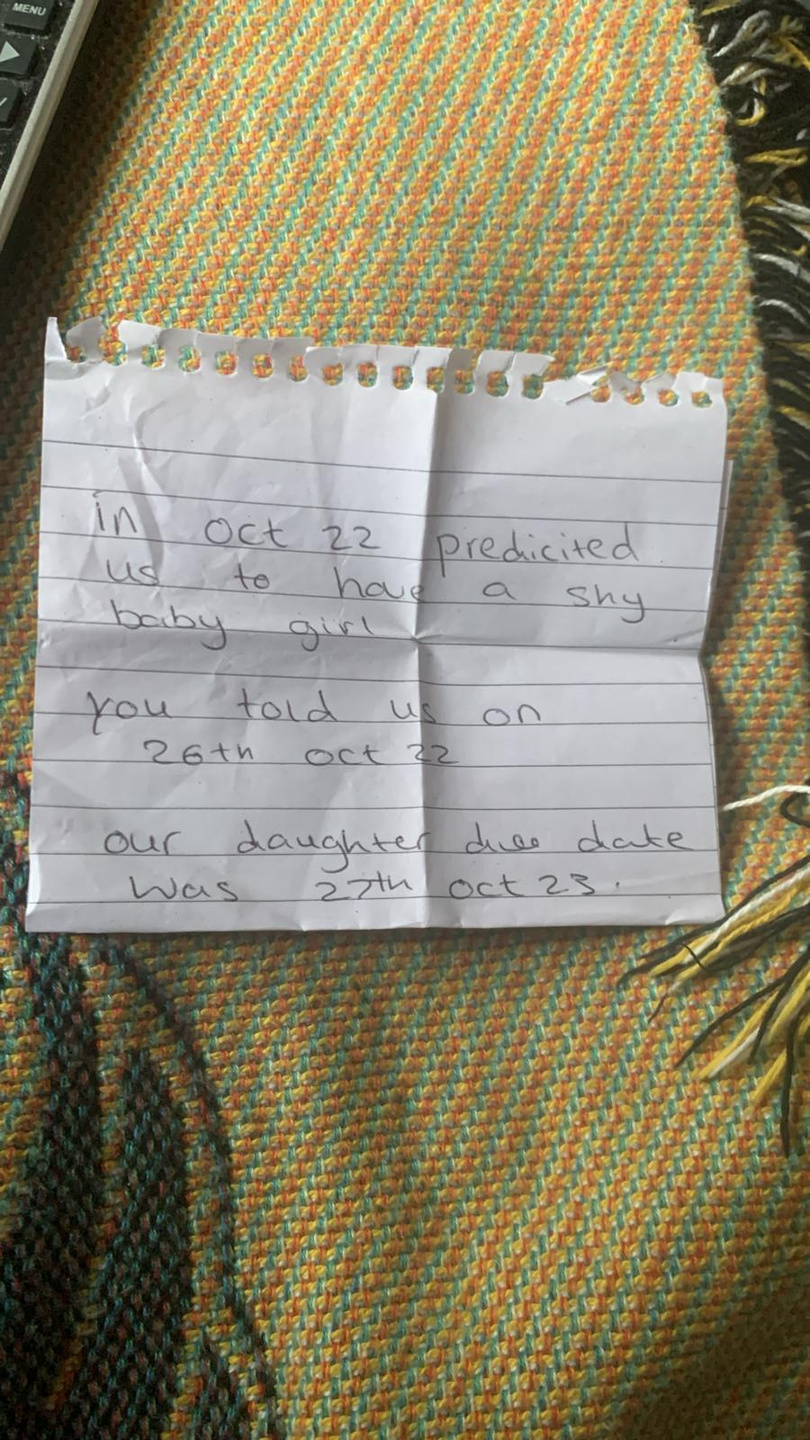 MENU
in oct 22 predicited
us to have a shy
baby girl
you told us on
26th oct 22
our daughter due date
was 27th oct 23.